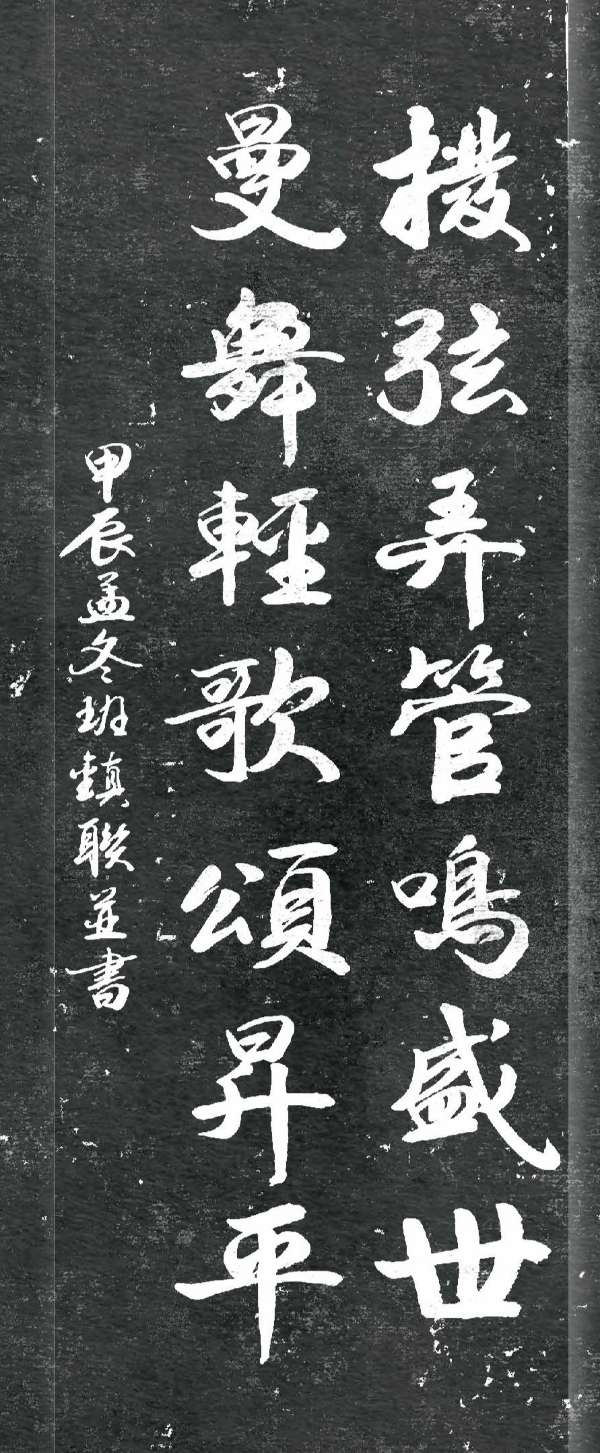 撥弦弄管鳴盛世
曼舞輕歌頌昇平
甲辰孟冬班鎮聯並書